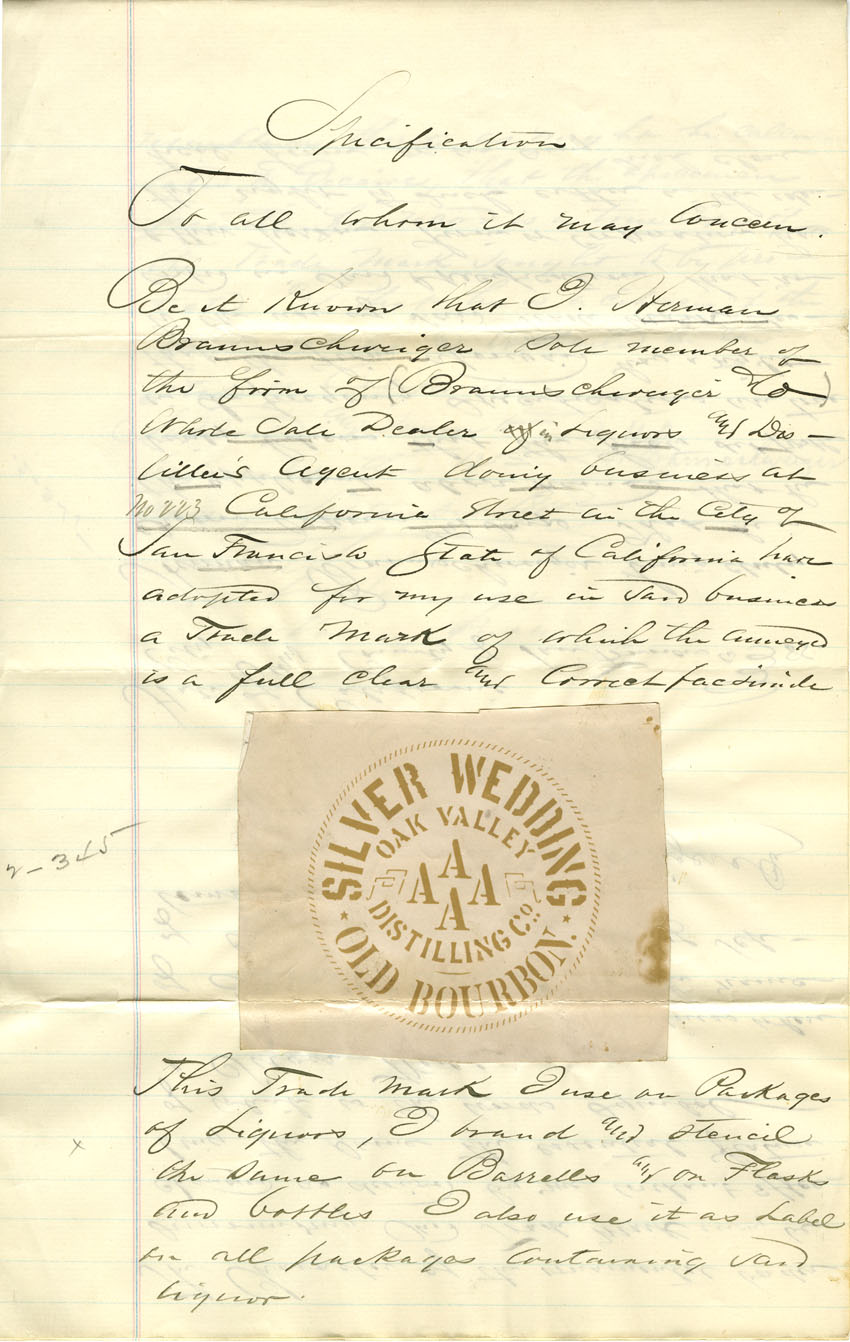 Specification
To all whom it may Concern.
Be it Known that I. Herman
Braunschweiger sole member of
the firm of (Braunschweiger & Co)
Whole Sale Dealer in Liquors and Dis-
tiller's Agent doing business at
No 223 California Street in the City of
San Francisco State of California have
adopted for my use in said business
a Trade Mark of which the annexed
is a full clear and Correct facsimile
SILVER WEDDING
OAK VALLEY
A
A A
A
DISTILLING Co.
★ OLD BOURBON. ★
2-345
This Trade Mark I use on Packages
of Liquors, I brand and stencil
x
the same on Barrells and on Flasks
and bottles I also use it as Label
on all packages Containing said
liquor.